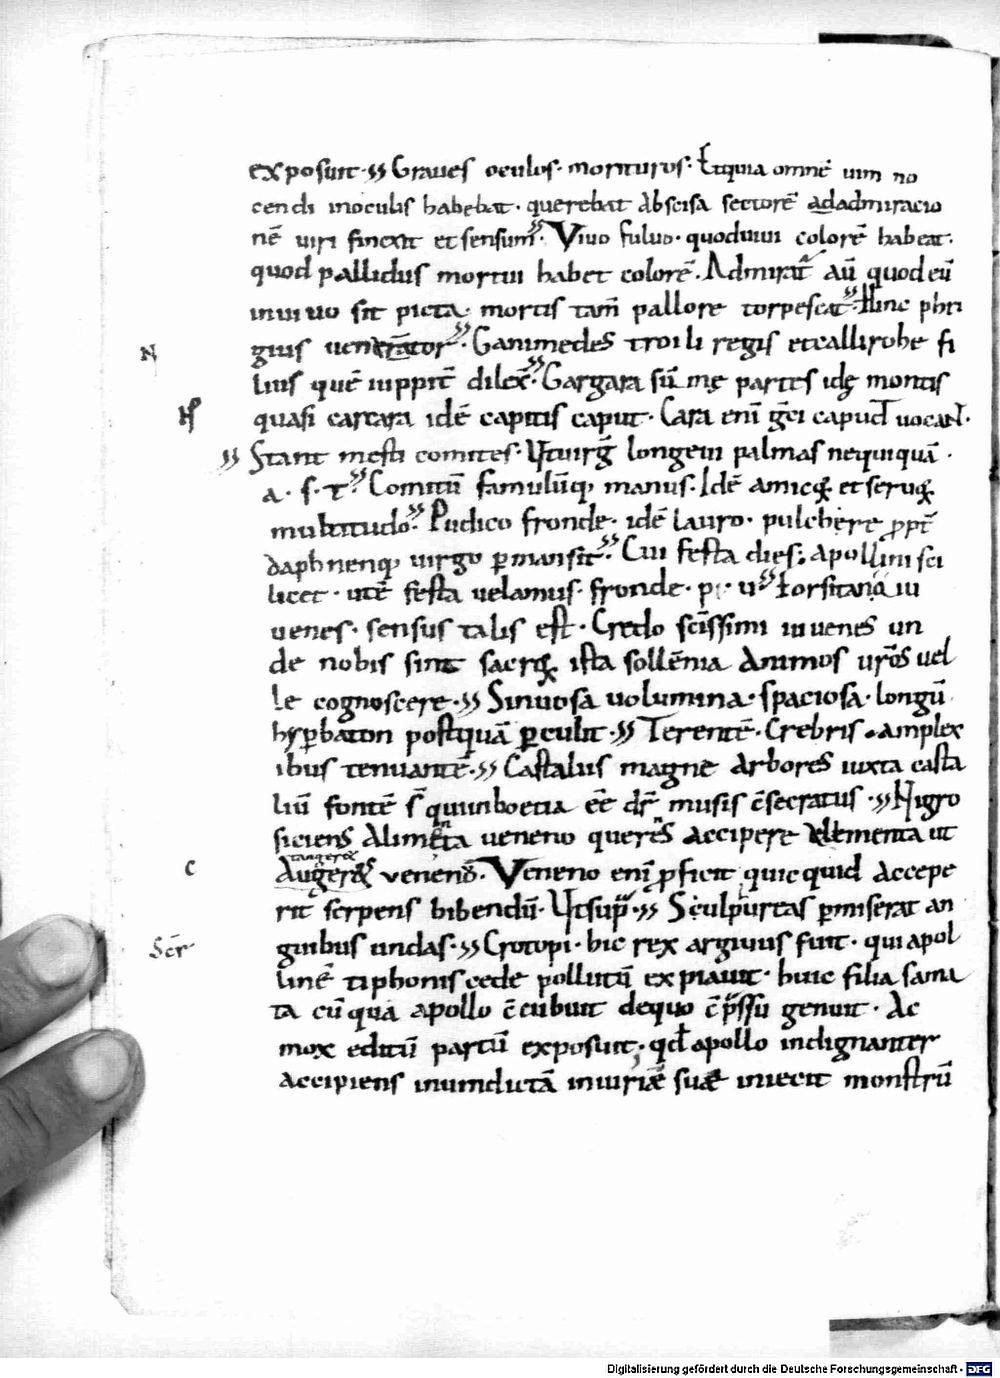 exposuit · Graues oculos · morituros · Et quia omnē uim no
cendi inoculis habebat · querebat abscisa sectorē adadmiracio
nē uiri finexit et sensum · Viuo fuluo · quod uiui colorē habeat ·
quod pallidus mortui habet colorē · Admirat̄ aū quod eū
inuiuo sit picta · mortis tam̄ pallore torpescat · Hinc phri
N
gius uenerator · Ganimedes troili regis et callirohe fi
lius quē iuppit̄ dilex̄ · Gargara sū mę partes idę montis
quasi carcara idē capitis caput · Cara eni g̅ci capud uocant ·
Stant mesti comites · Ut uirg̅ longeui palmas nequiquā ·
a · s · t · Comitū famulūq; manus · Idē amicoꝝ et seruoꝝ
multitudo · Pudico fronde · idē lauro · pulchere ꝓpt̄
daphnenq; uirgo ꝑmansit · Cui festa dies · apollini sci
licet · utē festa uelamus · fronde · p · u · Forsitan
uenes · sensus talis est · Credo sc̄issimi iuuenes un
de nobis sint sacroꝝ ista sollēnia animos ur̄os uel
le cognoscere · Sinuosa uolumina · spaciosa · longū
hyꝑbaton postquā ꝑculit · Terentē · Crebris · amplex
ibus tenuantē · Castalius magne arbores iuxta casta
liū fontē s̄ qui inboetia eē dr̄ musis c̄secratus · Nigro
siciens alimēta ueneno querens accipere elementa ut
tangeret
C
Augeret venenō · Veneno eni ꝓficit quicquid accepe
rit serpens bibendū · Ut sup̄ · Sculpturas ꝑmiserat an
Scr̄
guibus undas · Crotopi · hic rex argiuus fuit · qui apol
linē tiphonis cede pollutū expiauit · huic filia sana
ta cū qua apollo c̄cubuit de quo c̄p̄ssū genuit · Ac
mox editū partū exposuit · qd̄ apollo indignanter
accipiens inuindictā iniuriæ suæ iniecit monstrū
Digitalisierung gefördert durch die Deutsche Forschungsgemeinschaft - DFG